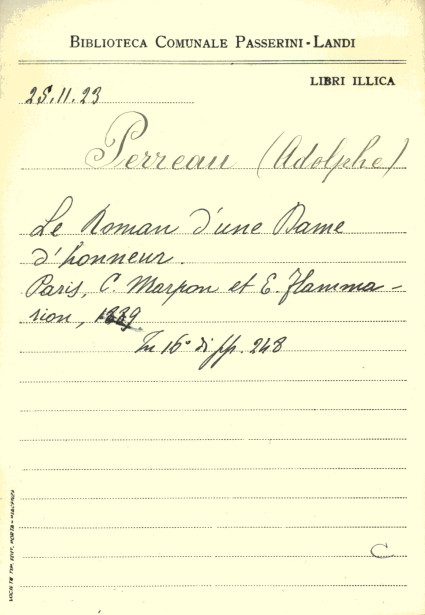 BIBLIOTECA COMUNALE PASSERINI-LANDI
LIBRI ILLICA
25.11.23
Perreau (Adolphe)
Le Roman d'une Dame
d'honneur.
Paris, C. Marpon et E. Flamma-
rion, 1889
In 16° di pp. 248
C